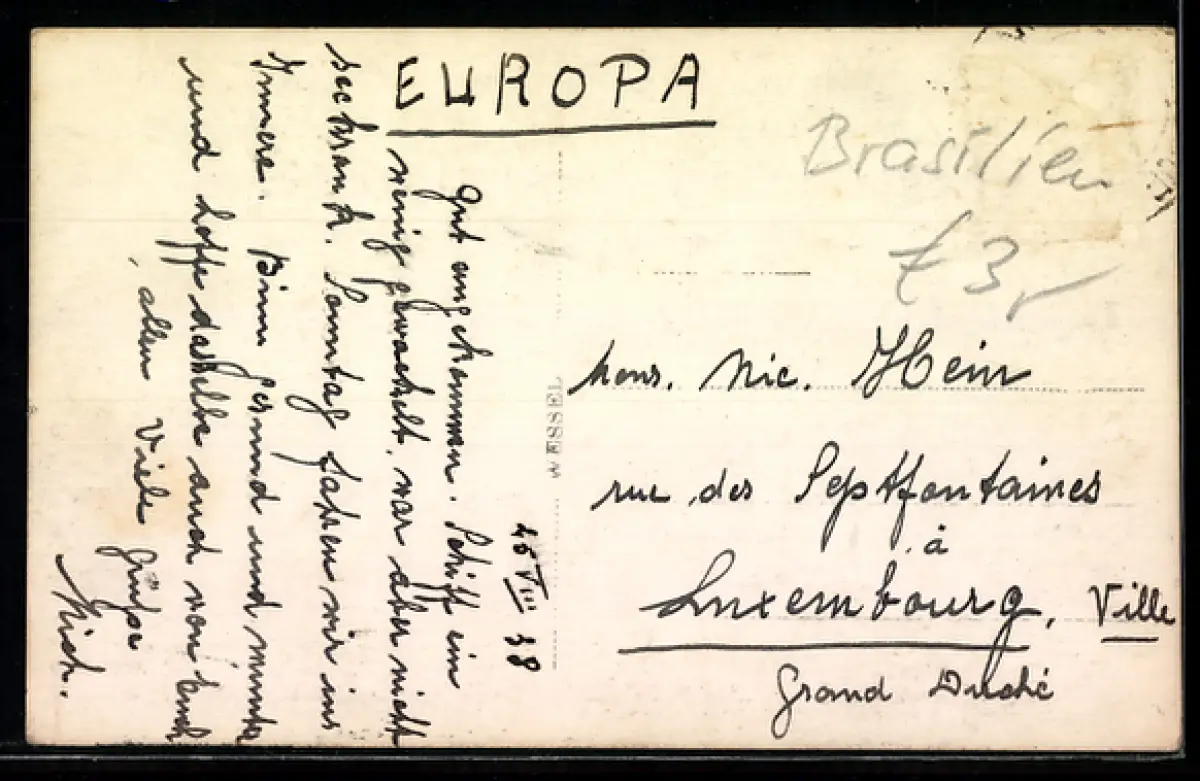 EUROPA
26 VIII 38
Gut angekommen. Schiff ein
wenig gewackelt. war aber nicht
seekrank. Sonntag fahren wir ins
Innere. Binn gesund und munter
und hoffe dasselbe auch von Euch
allen Viele Grüße
Mich.
WESSEL
Brasilien
£ 3,-
Mons. Nic. Hein
rue des Septfontaines
à
Luxembourg, Ville
Grand Duché